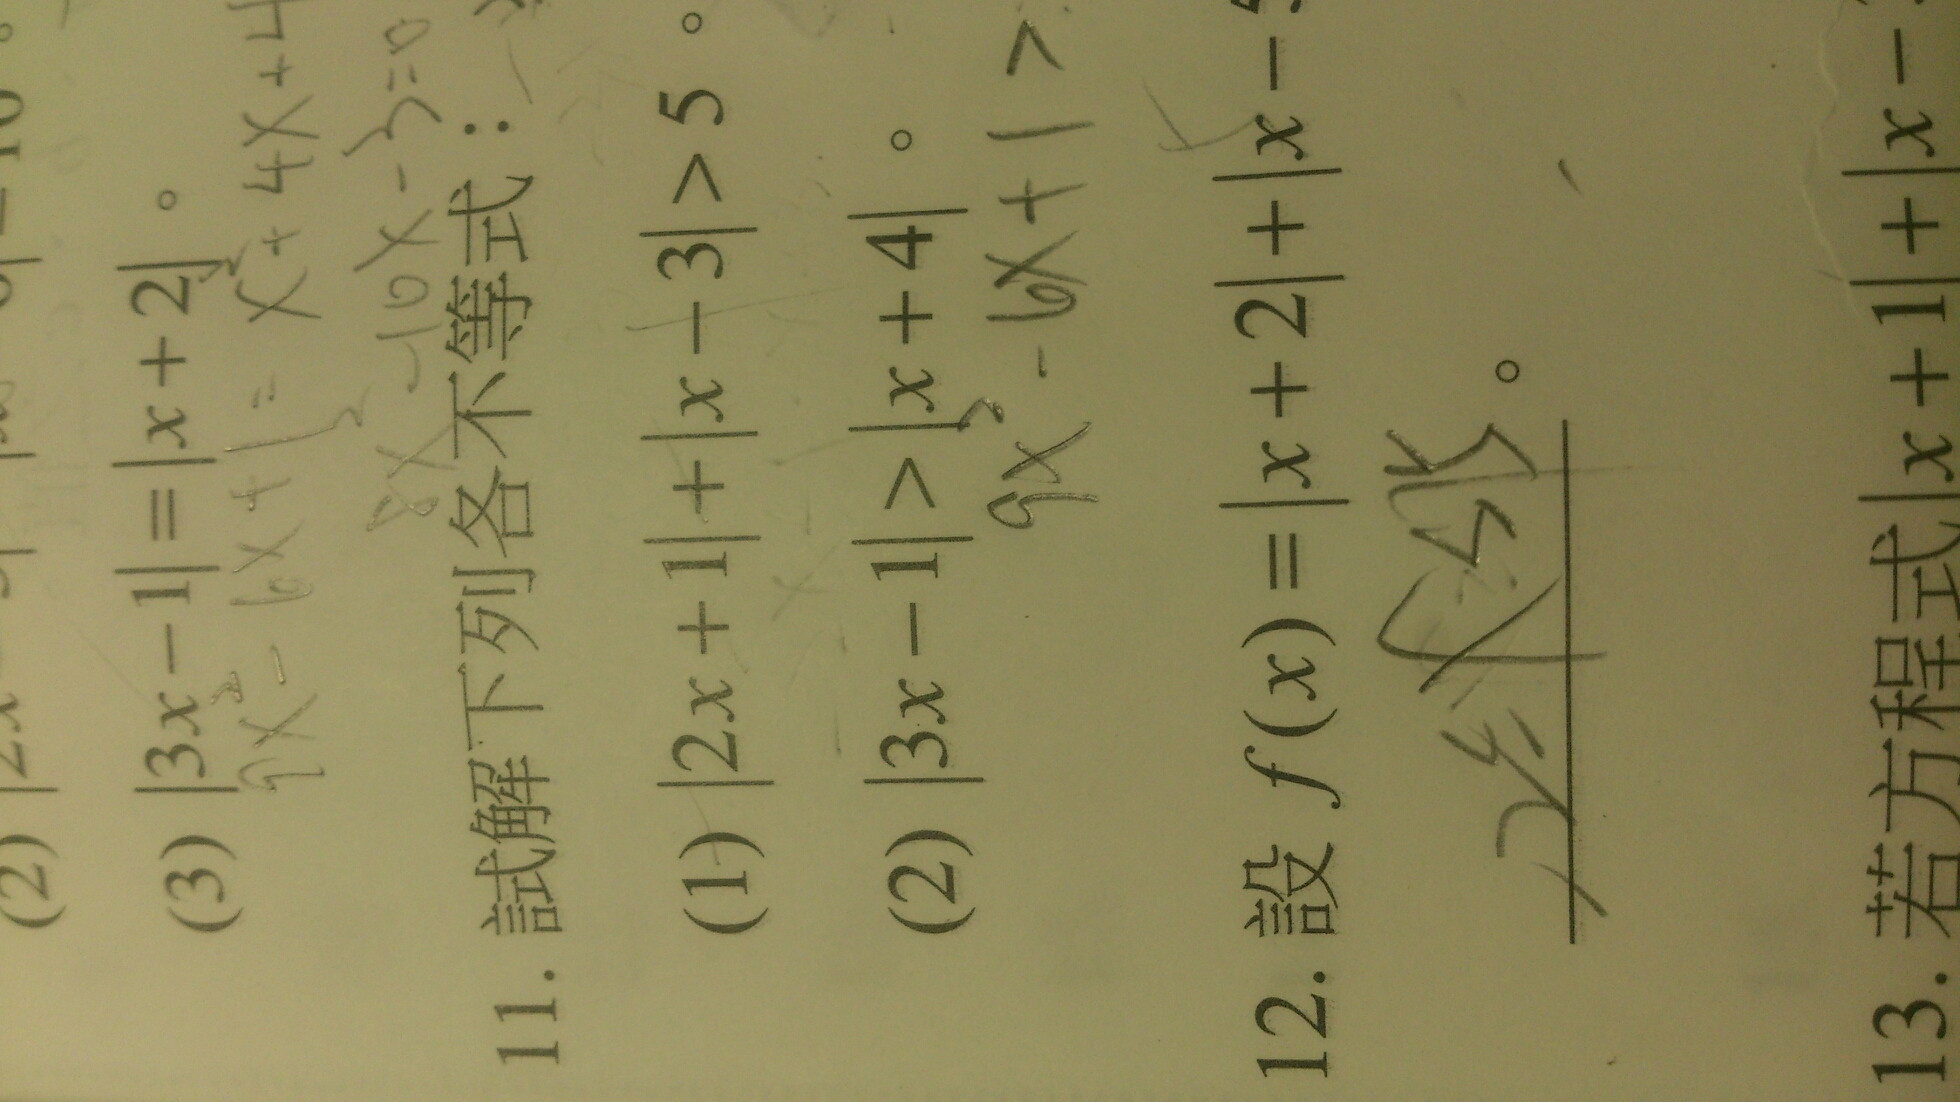 (2)
(3) |3x－1|＝|x＋2|。
9x² - 6x + 1 = x² + 4x + 4
8x² - 10x - 3 = 0
11. 試解下列各不等式：
(1) |2x＋1|＋|x－3|＞5。
(2) |3x－1|＞|x＋4|。
9x² - 6x + 1 >
12. 設 f(x)＝|x＋2|＋|x－5
。
13. 若方程式|x＋1|＋|x－